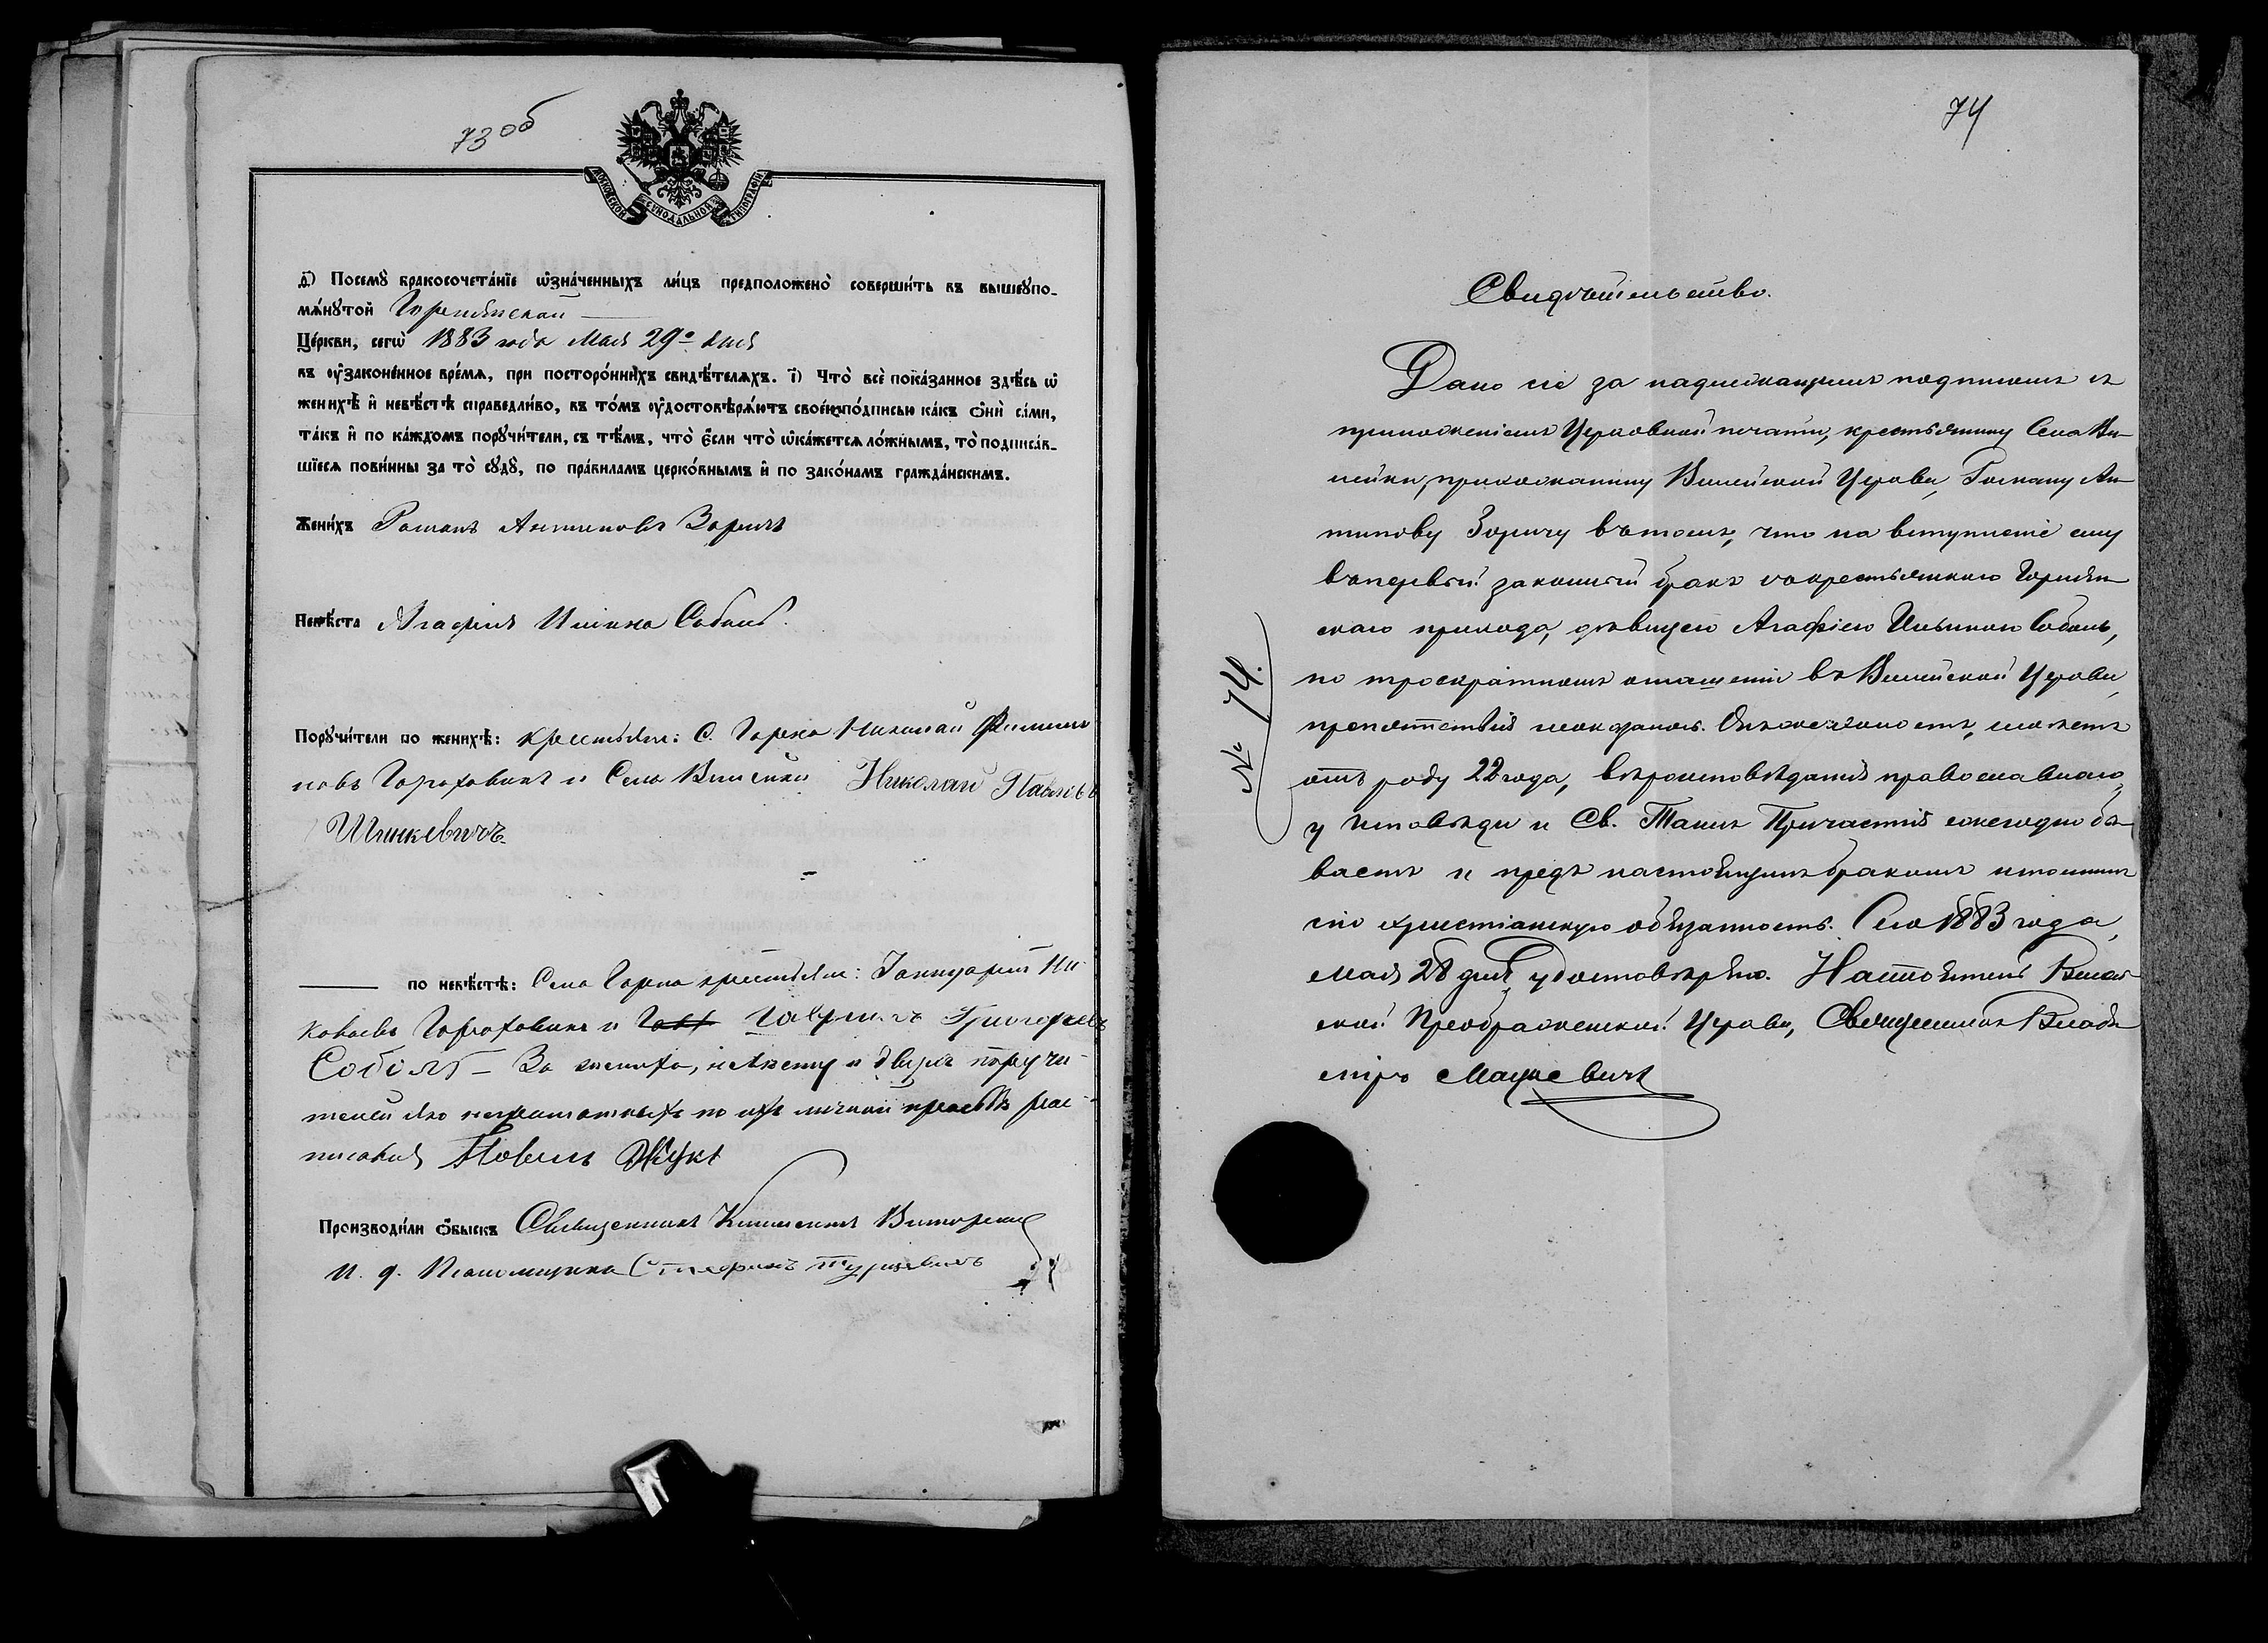 73 об
МОСКОВСКОЙ СѴНОДАЛЬНОЙ ТИПОГРАФІИ
д҃) Посемꙋ̀ бракосочета́нїе ѡ҆зна́ченныхъ ли́цъ предположено̀ соверши́ть въ вышеꙋпо-
мѧ́нꙋтой
Це́ркви, сегѡ̀ 1883 года Мая 29го дня
въ ᲂу҆зако́ненное вре́мѧ, при посторо́ннихъ свидѣ́телѧхъ. і҃) Что̀ всѐ пока́занное здѣ́сь ѡ҆
женихѣ̀ и҆ невѣ́стѣ справедли́во, въ то́мъ ᲂу҆достовѣрѧ́ютъ свое́ю по́дписью ка́къ ѻ҆нѝ са́ми,
та́къ и҆ по ка́ждомъ порꙋчи́тели, съ тѣ́мъ, что̀ є҆́сли что̀ ѡ҆ка́жетсѧ ло́жнымъ, то̀ подписа́в-
шїесѧ пови́нны за то̀ сꙋдꙋ̀, по пра́виламъ церко́внымъ и҆ по зако́намъ гражда́нскимъ.
Жени́хъ Романъ Антиповъ Зоричъ
Невѣ́ста Агафія Ильина Соболь.
Порꙋчи́тели по женихѣ̀: крестьяне: С. Горка Николай Филип
повъ Гороховикъ и Села Вилейки Николай Павловъ
Шинкевичъ.
по невѣ́стѣ: Села Горка крестьяне: Іаннуарій Ни
колаевъ Гороховикъ и Гавріилъ Григорьевъ
Соболь – За жениха, невѣсту и двухъ поручи-
телей яко неграмотныхъ по ихъ личной просьбѣ рос-
писался Жукъ
Производи́ли ѻ҆́быскъ Священникъ Климентъ
И. д. Псаломщика Стефанъ
74
Свидѣтельство.
Дано сіе за надлежащимъ подписомъ и съ
приложеніемъ Церковной печати, крестьянину Села Ви-
лейки, прихожанину Вилейской Церкви, Роману Ан-
типову Зоричу въ томъ, что на вступленіе ему
въ первый законный бракъ со крестьянкою Горкян-
скаго прихода, дѣвицею Агафіею Ильиною Соболь,
по троекратномъ оглашеніи въ Вилейской Церкви,
препятствія не оказалось. Онъ же холостъ, имѣетъ
отъ роду 22 года, вѣроисповѣданія православнаго,
у Исповѣди и Св. Таинъ Причастія ежегодно бы-
ваетъ и предъ настоящимъ бракомъ исполнилъ
сію христіанскую обязанность. Сего 1883 года,
мая 28 дня удостовѣряю. Настоятель Вилей-
ской Преображенской Церкви, Священникъ Влади
міръ Мацкевичъ
№ 74.